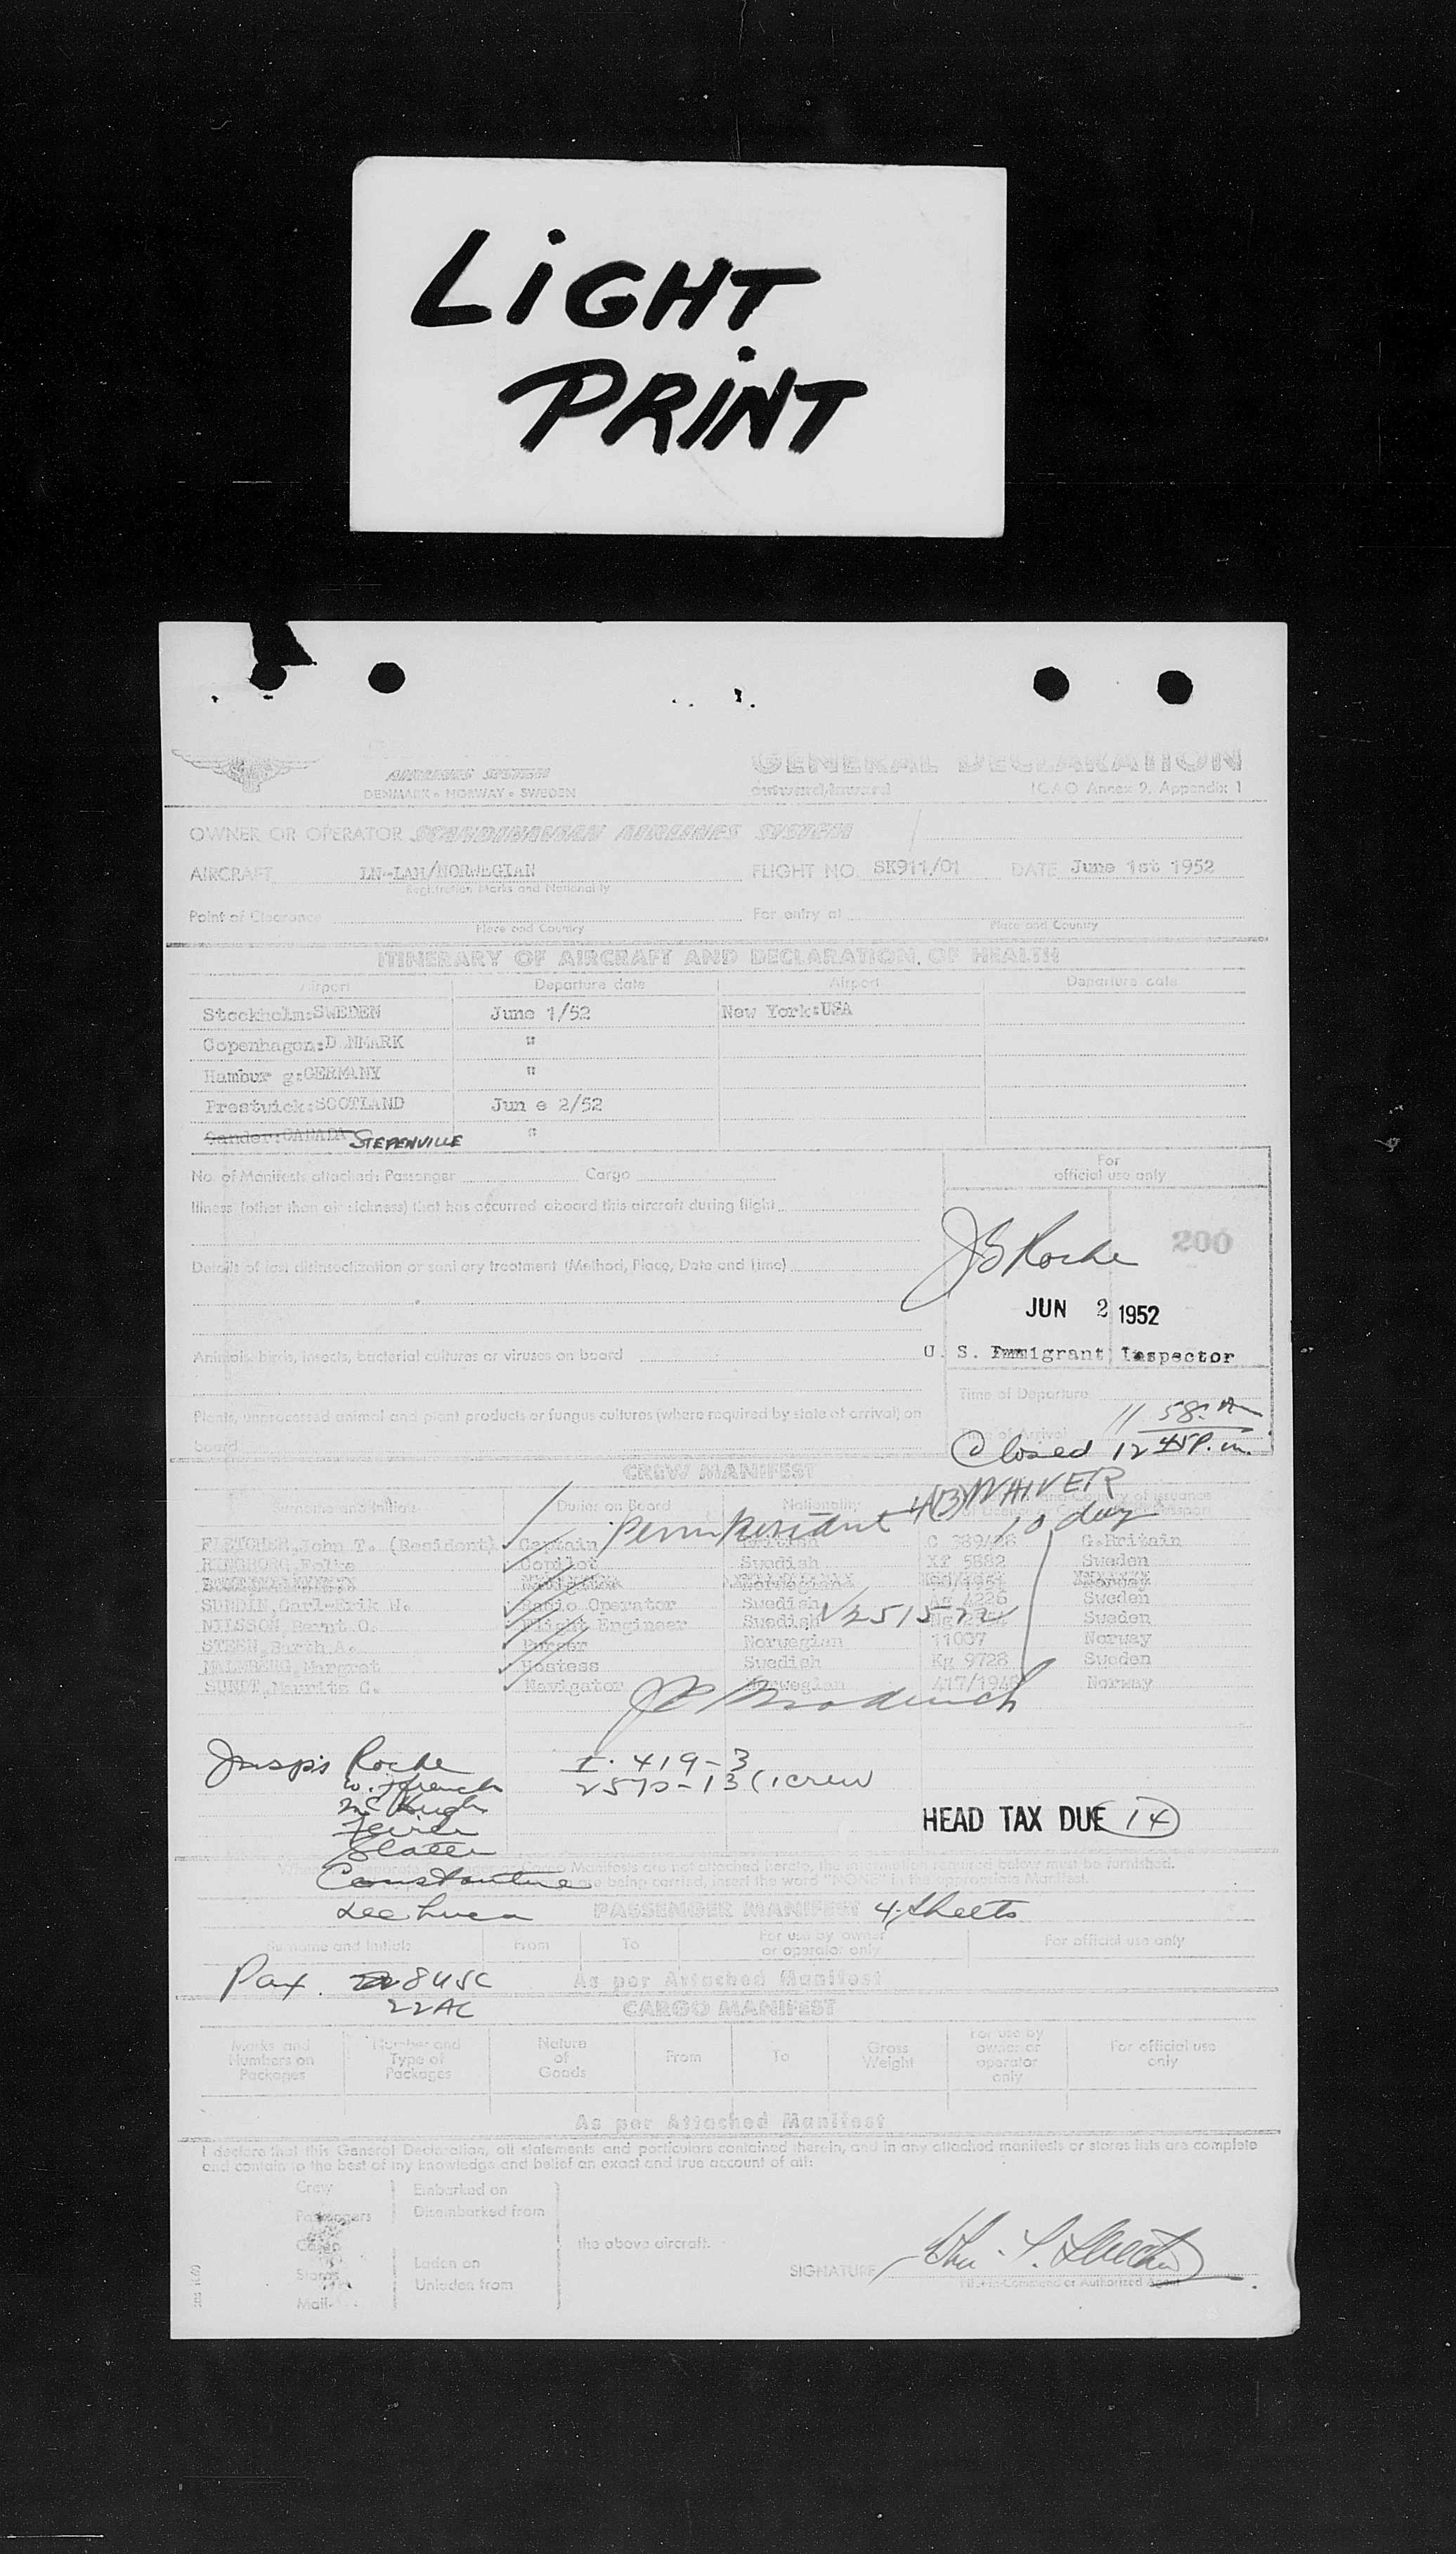 LiGHT
PRiNT
AIRLINES SYSTEM
DENMARK • NORWAY • SWEDEN
GENERAL DECLARATION
outward/inward
ICAO Annex 9, Appendix 1
OWNER OR OPERATOR SCANDINAVIAN AIRLINES SYSTEM
AIRCRAFT LN-LAH/NORWEGIAN FLIGHT NO. SK911/01 DATE June 1st 1952
Registration Marks and Nationality
Point of Clearance For entry at
Place and Country Place and Country
ITINERARY OF AIRCRAFT AND DECLARATION OF HEALTH
Airport Departure date Airport Departure date
Stockholm:SWEDEN June 1/52 New York:USA
Copenhagen:D NMARK "
Hambur g:GERMANY "
Prestwick:SCOTLAND Jun e 2/52
Gander:CANADA STEPENVILLE "
No. of Manifests attached: Passenger Cargo
For
official use only
Illness (other than air sickness) that has occurred aboard this aircraft during flight
200
JB Roche
Details of last disinsectization or sanitary treatment (Method, Place, Date and Time)
JUN 2 1952
Animals, birds, insects, bacterial cultures or viruses on board
U. S. Immigrant Inspector
Time of Departure
Plants, unprocessed animal and plant products or fungus cultures (where required by state of arrival) on
board
11 58
Time of Arrival
Closed 12 45 P.m.
CREW MANIFEST
Surname and Initials Duties on Board Nationality
4(3) WAIVER
10 day
Perm Resident
FLETCHER, John T. (Resident) Captain British C 389/ G.Britain
RINGBORG, Folke Copilot Swedish XF 5882 Sweden
SUNDIN, Carl-Erik N. Radio Operator Swedish 4226 Sweden
V251522
NILSSON, Bernt O. Flight Engineer Swedish Sweden
STEEN, Barth A. Purser Norwegian 11007 Norway
MALMBERG, Margret Hostess Swedish Kg 9728 Sweden
SUNDT, Herrits C. Navigator Norwegian 417/194 Norway
Insp's Roche
I. 419-3
2570-13 (1 crew
W. French
Mc Hugh
HEAD TAX DUE 14
Slatter
Manifests are not attached hereto, the information required below must be furnished.
Constantine
are being carried, insert the word "NONE" in the appropriate Manifest.
PASSENGER MANIFEST 4 Sheets
Surname and Initials From To For use by owner or operator only For official use only
As per Attached Manifest
Pax. 8 USC
22 AC
CARGO MANIFEST
Marks and Numbers on Packages Number and Type of Packages Nature of Goods From To Gross Weight For use by owner or operator only For official use only
As per Attached Manifest
I declare that this General Declaration, all statements and particulars contained therein, and in any attached manifests or stores lists are complete
and contain to the best of my knowledge and belief an exact and true account of all:
Crew Embarked on
Passengers Disembarked from
Cargo the above aircraft.
Stores Laden on
Unladen from
Mail
SIGNATURE
Pilot-in-Command or Authorized Agent